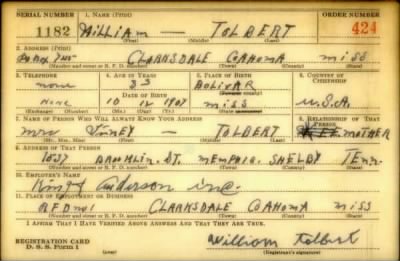 SERIAL NUMBER 1. NAME (Print) ORDER NUMBER
1182 William — TOLBERT 424
(First) (Middle) (Last)
2. ADDRESS (Print)
CLARKSDALE COAHOMA MISS
(Number and street or R. F. D. number) (Town) (County) (State)
3. TELEPHONE 4. AGE IN YEARS 5. PLACE OF BIRTH 6. COUNTRY OF CITIZENSHIP
none 33 BOLIVAR
DATE OF BIRTH (Town or county)
none 10 12 1907 miss U.S.A.
(Exchange) (Number) (Mo.) (Day) (Yr.) (State or country)
7. NAME OF PERSON WHO WILL ALWAYS KNOW YOUR ADDRESS 8. RELATIONSHIP OF THAT PERSON
mrs — TOLBERT MOTHER
(Mr., Mrs., Miss) (First) (Middle) (Last)
9. ADDRESS OF THAT PERSON
1037 ST. MEMPHIS, SHELBY TENN.
(Number and street or R. F. D. number) (Town) (County) (State)
10. EMPLOYER'S NAME
King & Anderson inc.
11. PLACE OF EMPLOYMENT OR BUSINESS
RFD no 1 CLARKSDALE COAHOMA MISS
(Number and street or R. F. D. number) (Town) (County) (State)
I AFFIRM THAT I HAVE VERIFIED ABOVE ANSWERS AND THAT THEY ARE TRUE.
REGISTRATION CARD
D. S. S. Form 1 William Tolbert
(Registrant's signature)